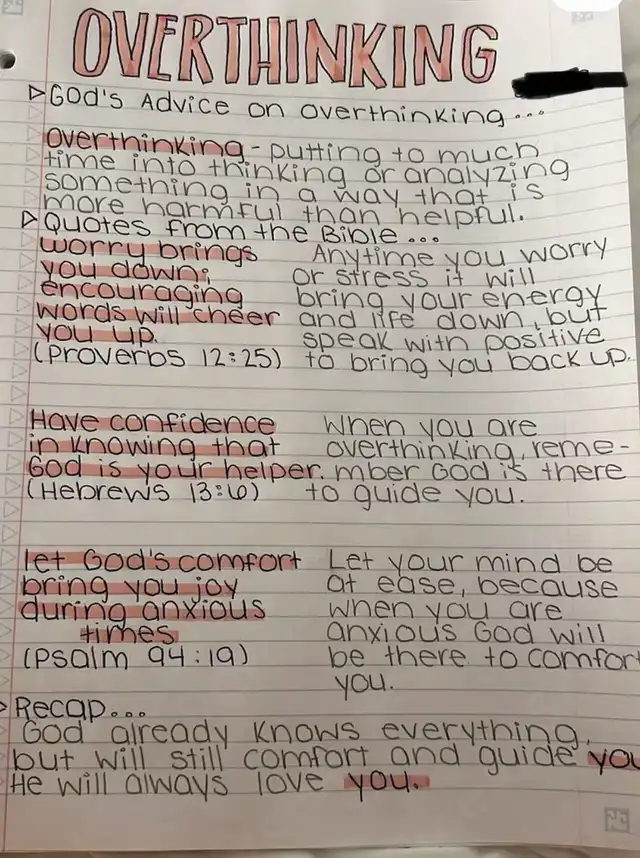 OVERTHINKING
God's Advice on overthinking...
overthinking - putting to much
time into thinking or analyzing
something in a way that is
more harmful than helpful.
Quotes from the Bible...
worry brings
you down;
encouraging
words will cheer
you up.
(Proverbs 12:25)
Anytime you worry
or stress it will
bring your energy
and life down, but
speak with positive
to bring you back up.
Have confidence
in knowing that
God is your helper.
(Hebrews 13:6)
When you are
overthinking, reme-
mber God is there
to guide you.
let God's comfort
bring you joy
during anxious
times
(Psalm 94:19)
Let your mind be
at ease, because
when you are
anxious God will
be there to comfort
you.
Recap...
God already knows everything,
but will still comfort and guide you
He will always love you.